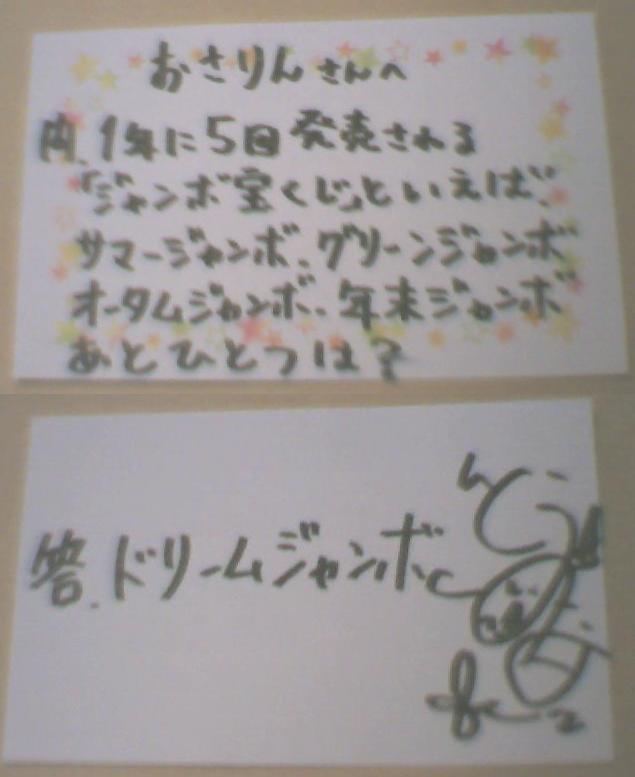 おさりんさんへ
問.1年に5回発売される
「ジャンボ宝くじ」といえば、
サマージャンボ、グリーンジャンボ
オータムジャンボ、年末ジャンボ
あとひとつは?
答.ドリームジャンボ